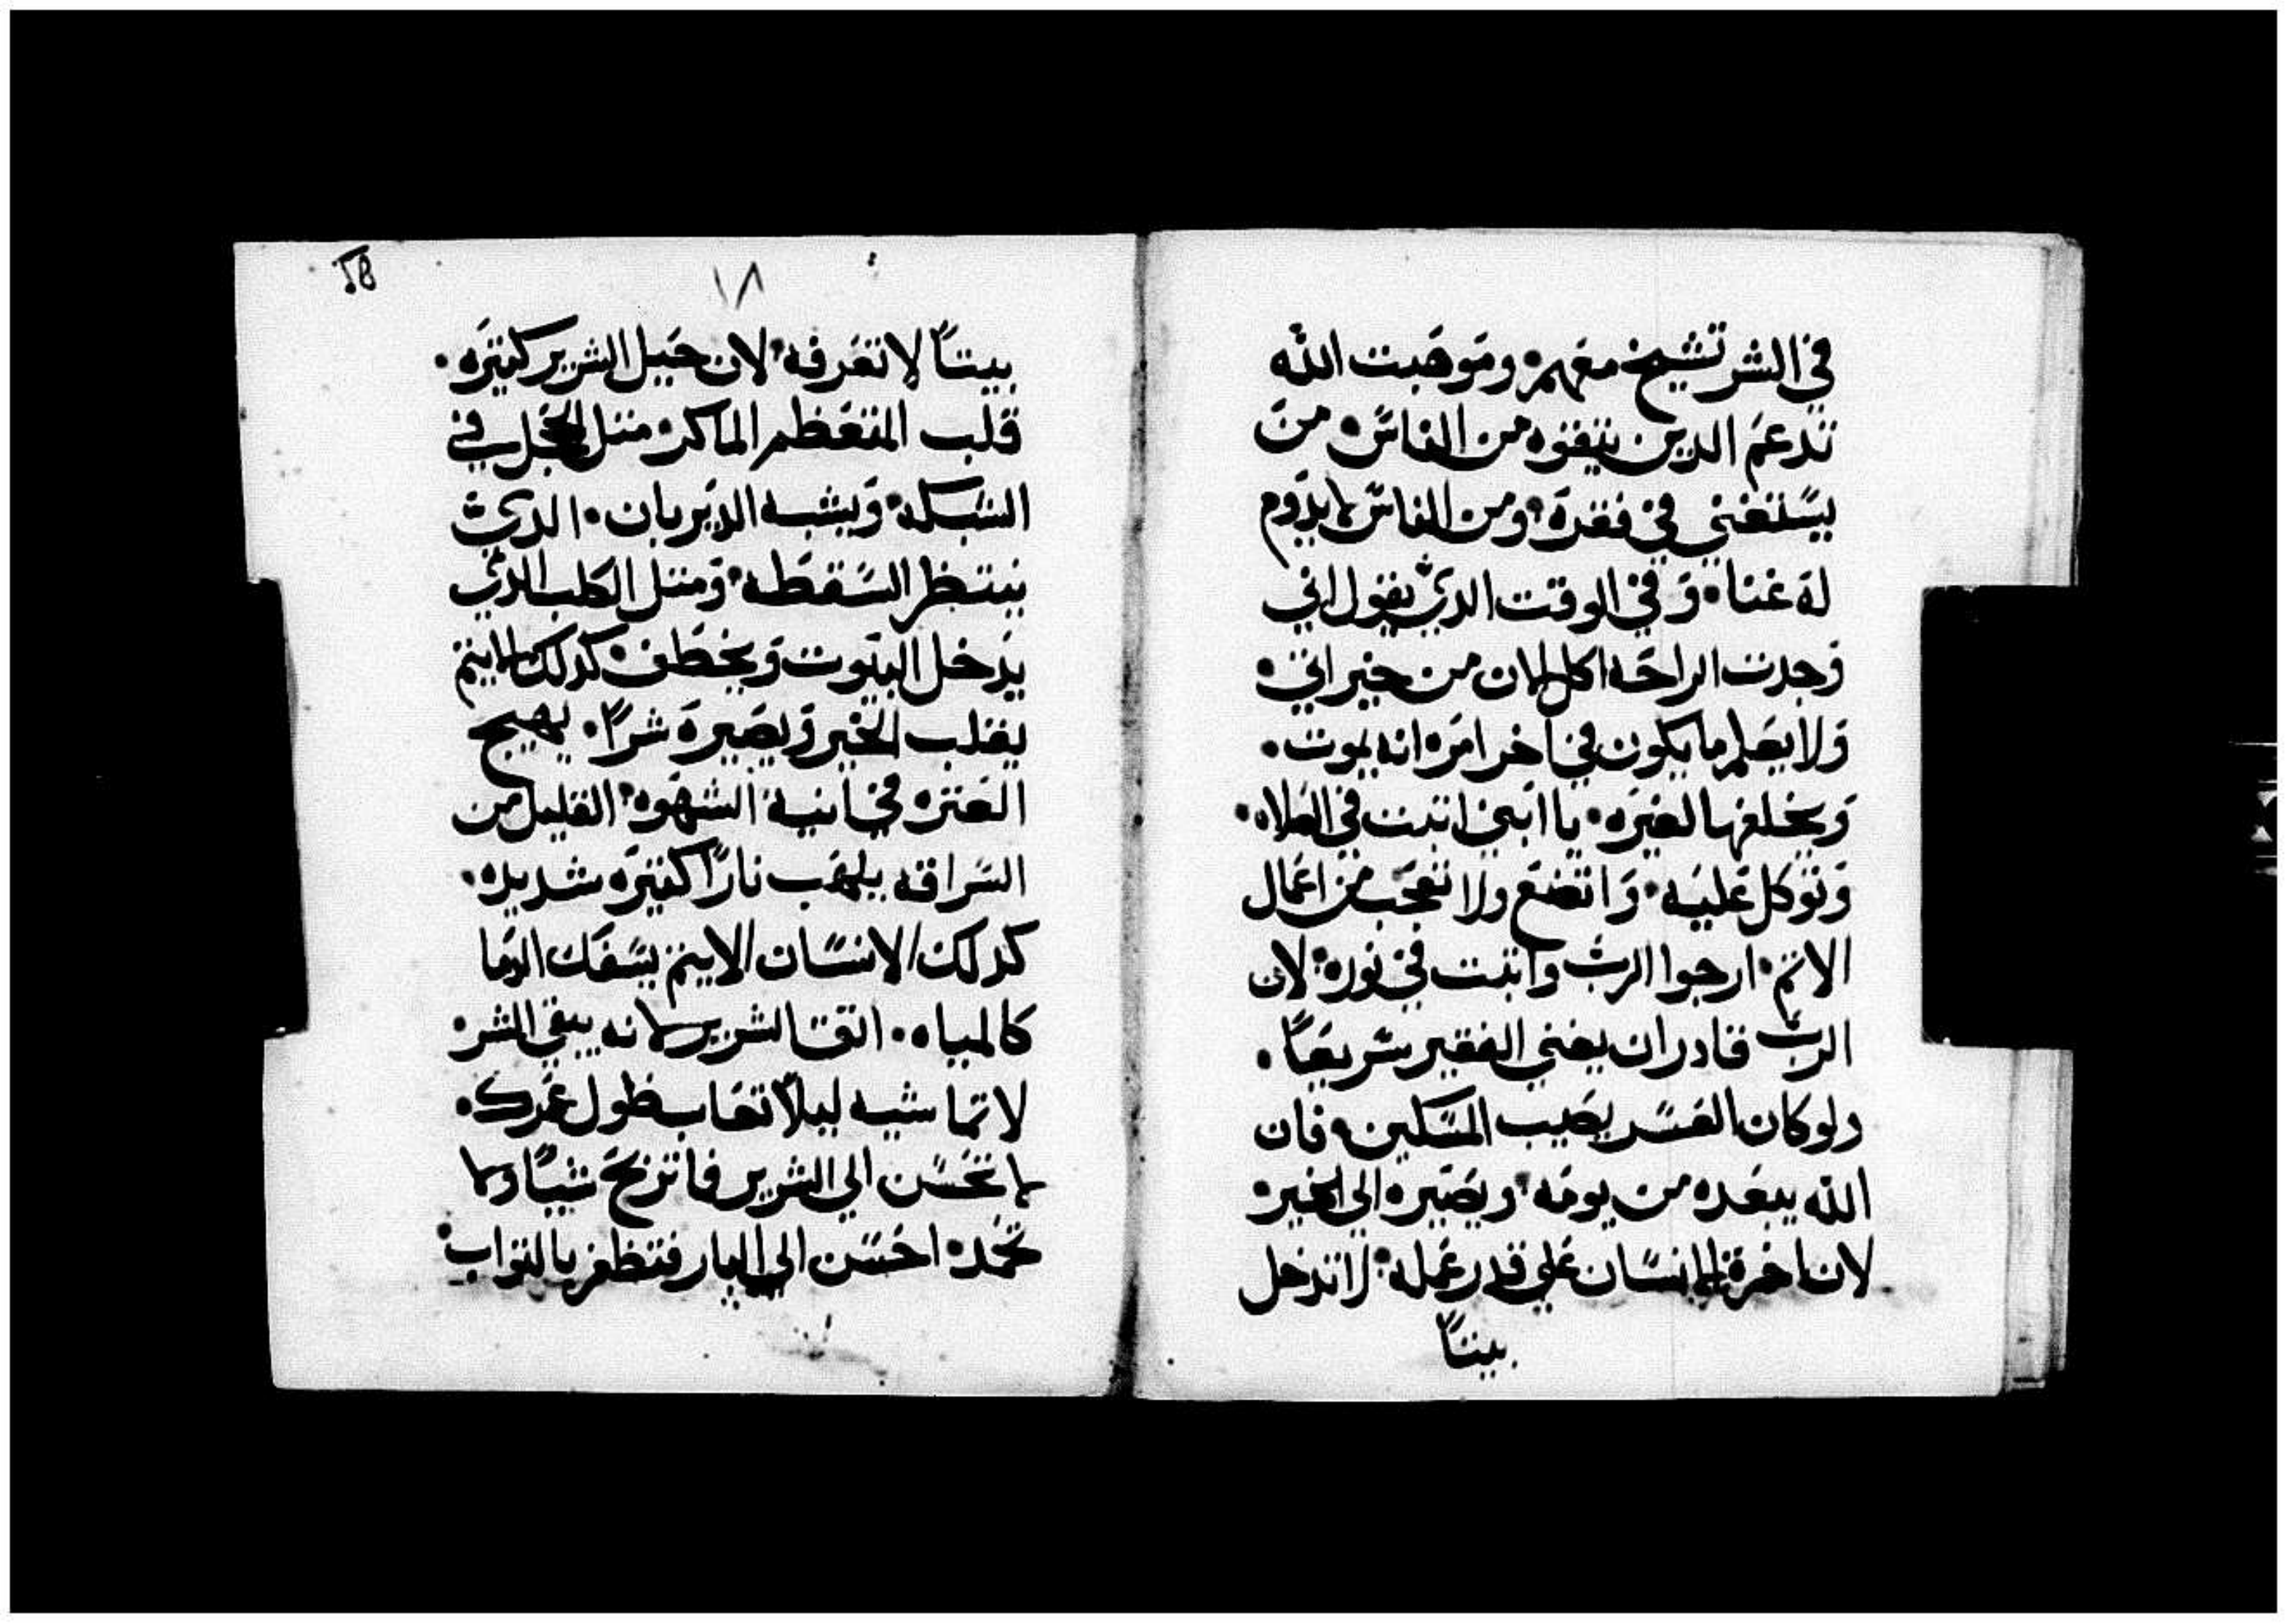 في الشر تشيخ معهم. وموهبت الله
تدعم الدين يتقوه من الناس. من
يستغني في فقره. ومن الناس لا يدوم
له غنا. وفي الوقت الدي يقول اني
وجدت الراحه اكل الان من خيراتي.
ولا يعلم ما يكون في اخر امره انه يموت.
ويخلفها لغيره. يا ابني اتبت في الصلاه.
وتوكل عليه. واتضع ولا تعجب من اعمال
الاتم. ارجوا الرب واتبت في نوره. لان
الرب قادر ان يغني الفقير سريعاً.
ولو كان العسر يصيب المسكين. فان
الله يبعده من يومه. ويصيره الي الخير.
لان اخرة الانسان علي قدر عمله. لا تدخل
بيتاً
١٨
18
بيتاً لا تعرفه. لان حيل الشرير كتيره.
قلب المتعظم الماكر. متل الحجل في
الشبكه. ويشبه الديربان. الدي
ينتظر السقطه. ومتل الكلب الدي
يدخل البيوت ويخطف. كدلك الاتيم
يقلب الخير ويصيره شراً. يهيج
العتره في انية الشهوه. القليل من
الشراقه يلهب ناراً كتيره شديده.
كدلك الانسان الاتيم يسفك الدما
كالمياه. اتق الشرير لانه يبقي الشر.
لا تماشيه ليلاً تعاب طول عمرك.
لا تحسن الي الشرير فما تربح شياً ولا
تحمد. احسن الي البار فتظفر بالتواب.